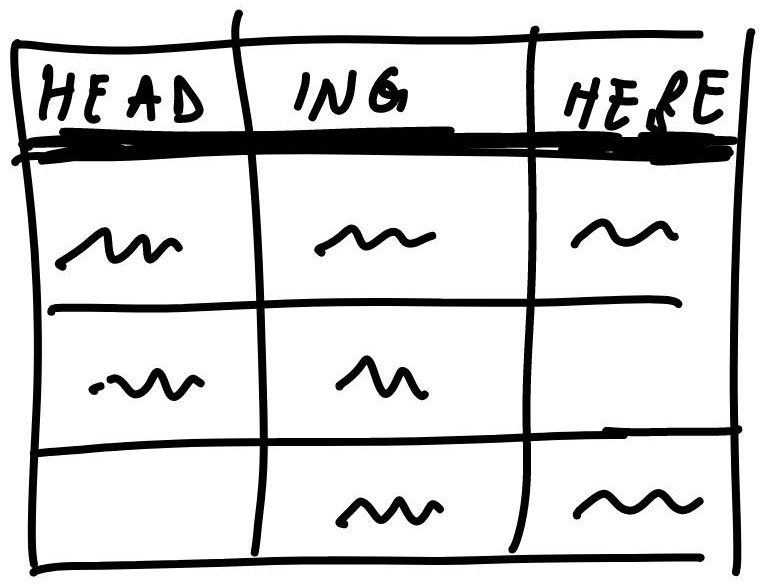 HEAD ING HERE